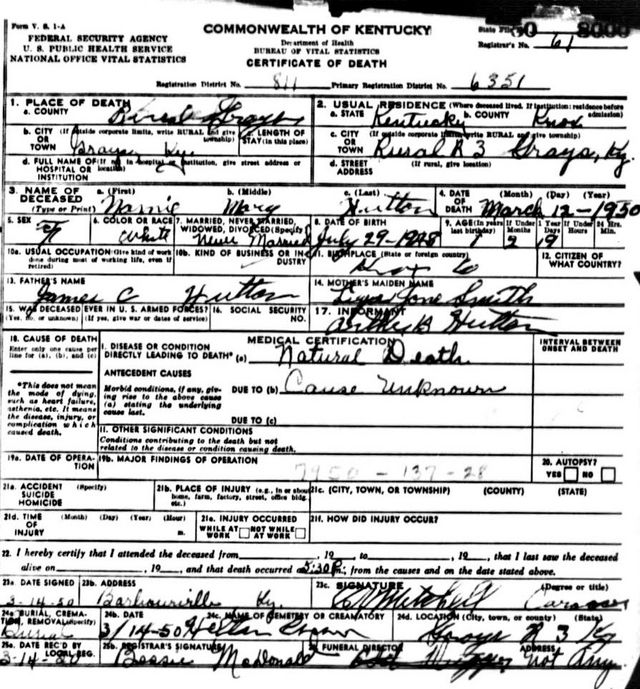 Form V. S. 1-A
FEDERAL SECURITY AGENCY
U. S. PUBLIC HEALTH SERVICE
NATIONAL OFFICE VITAL STATISTICS
COMMONWEALTH OF KENTUCKY
Department of Health
BUREAU OF VITAL STATISTICS
CERTIFICATE OF DEATH
State File 50 8000
Registrar's No. 61
Registration District No. 811 Primary Registration District No. 6351
1. PLACE OF DEATH
a. COUNTY
2. USUAL RESIDENCE (Where deceased lived. If institution: residence before admission)
a. STATE Kentucky b. COUNTY Knox
b. CITY (If outside corporate limits, write RURAL and give township) OR TOWN
c. LENGTH OF STAY (in this place)
c. CITY (If outside corporate limits, write RURAL and give township) OR TOWN Rural R 3 Grays, Ky.
d. FULL NAME OF (If not in hospital or institution, give street address or location) HOSPITAL OR INSTITUTION
d. STREET ADDRESS (If rural, give location)
3. NAME OF DECEASED (Type or Print)
a. (First) b. (Middle) Mary c. (Last) Hutton
4. DATE OF DEATH (Month) (Day) (Year) March 12-1950
5. SEX
6. COLOR OR RACE White
7. MARRIED, NEVER MARRIED, WIDOWED, DIVORCED (Specify) Never Married
8. DATE OF BIRTH July 29-1948
9. AGE (In years last birthday) 1 If Under 1 Year Months Days If Under 24 Hrs. Hours Min.
10a. USUAL OCCUPATION (Give kind of work done during most of working life, even if retired)
10b. KIND OF BUSINESS OR INDUSTRY
11. BIRTHPLACE (State or foreign country) Knox Co
12. CITIZEN OF WHAT COUNTRY?
13. FATHER'S NAME
James C Hutton
14. MOTHER'S MAIDEN NAME
Smith
15. WAS DECEASED EVER IN U. S. ARMED FORCES? (Yes, no, or unknown) (If yes, give war or dates of service)
16. SOCIAL SECURITY NO.
17. INFORMANT
B Hutton
18. CAUSE OF DEATH
Enter only one cause per line for (a), (b), and (c)
*This does not mean the mode of dying, such as heart failure, asthenia, etc. It means the disease, injury, or complication which caused death.
MEDICAL CERTIFICATION
INTERVAL BETWEEN ONSET AND DEATH
I. DISEASE OR CONDITION DIRECTLY LEADING TO DEATH* (a) Natural Death
ANTECEDENT CAUSES
Morbid conditions, if any, giving rise to the above cause (a) stating the underlying cause last.
DUE TO (b) Cause Unknown
DUE TO (c)
II. OTHER SIGNIFICANT CONDITIONS
Conditions contributing to the death but not related to the disease or condition causing death.
19a. DATE OF OPERATION
19b. MAJOR FINDINGS OF OPERATION
7950-137-28
20. AUTOPSY? YES NO
21a. ACCIDENT SUICIDE HOMICIDE (Specify)
21b. PLACE OF INJURY (e.g., in or about home, farm, factory, street, office bldg. etc.)
21c. (CITY, TOWN, OR TOWNSHIP) (COUNTY) (STATE)
21d. TIME OF INJURY (Month) (Day) (Year) (Hour) m.
21e. INJURY OCCURRED WHILE AT WORK NOT WHILE AT WORK
21f. HOW DID INJURY OCCUR?
22. I hereby certify that I attended the deceased from , 19 to , 19 , that I last saw the deceased
alive on , 19 , and that death occurred at 5:30P m., from the causes and on the date stated above.
23a. DATE SIGNED 3-14-50
23b. ADDRESS Barbourville Ky.
23c. SIGNATURE Mitchell (Degree or title) Coroner
24a. BURIAL, CREMATION, REMOVAL (Specify) Burial
24b. DATE 3/14-50
24c. NAME OF CEMETERY OR CREMATORY
24d. LOCATION (City, town, or county) (State) Grays R 3 Ky
25a. DATE REC'D BY LOCAL REG. 3-14-50
25b. REGISTRAR'S SIGNATURE Bessie McDonald
FUNERAL DIRECTOR not Any